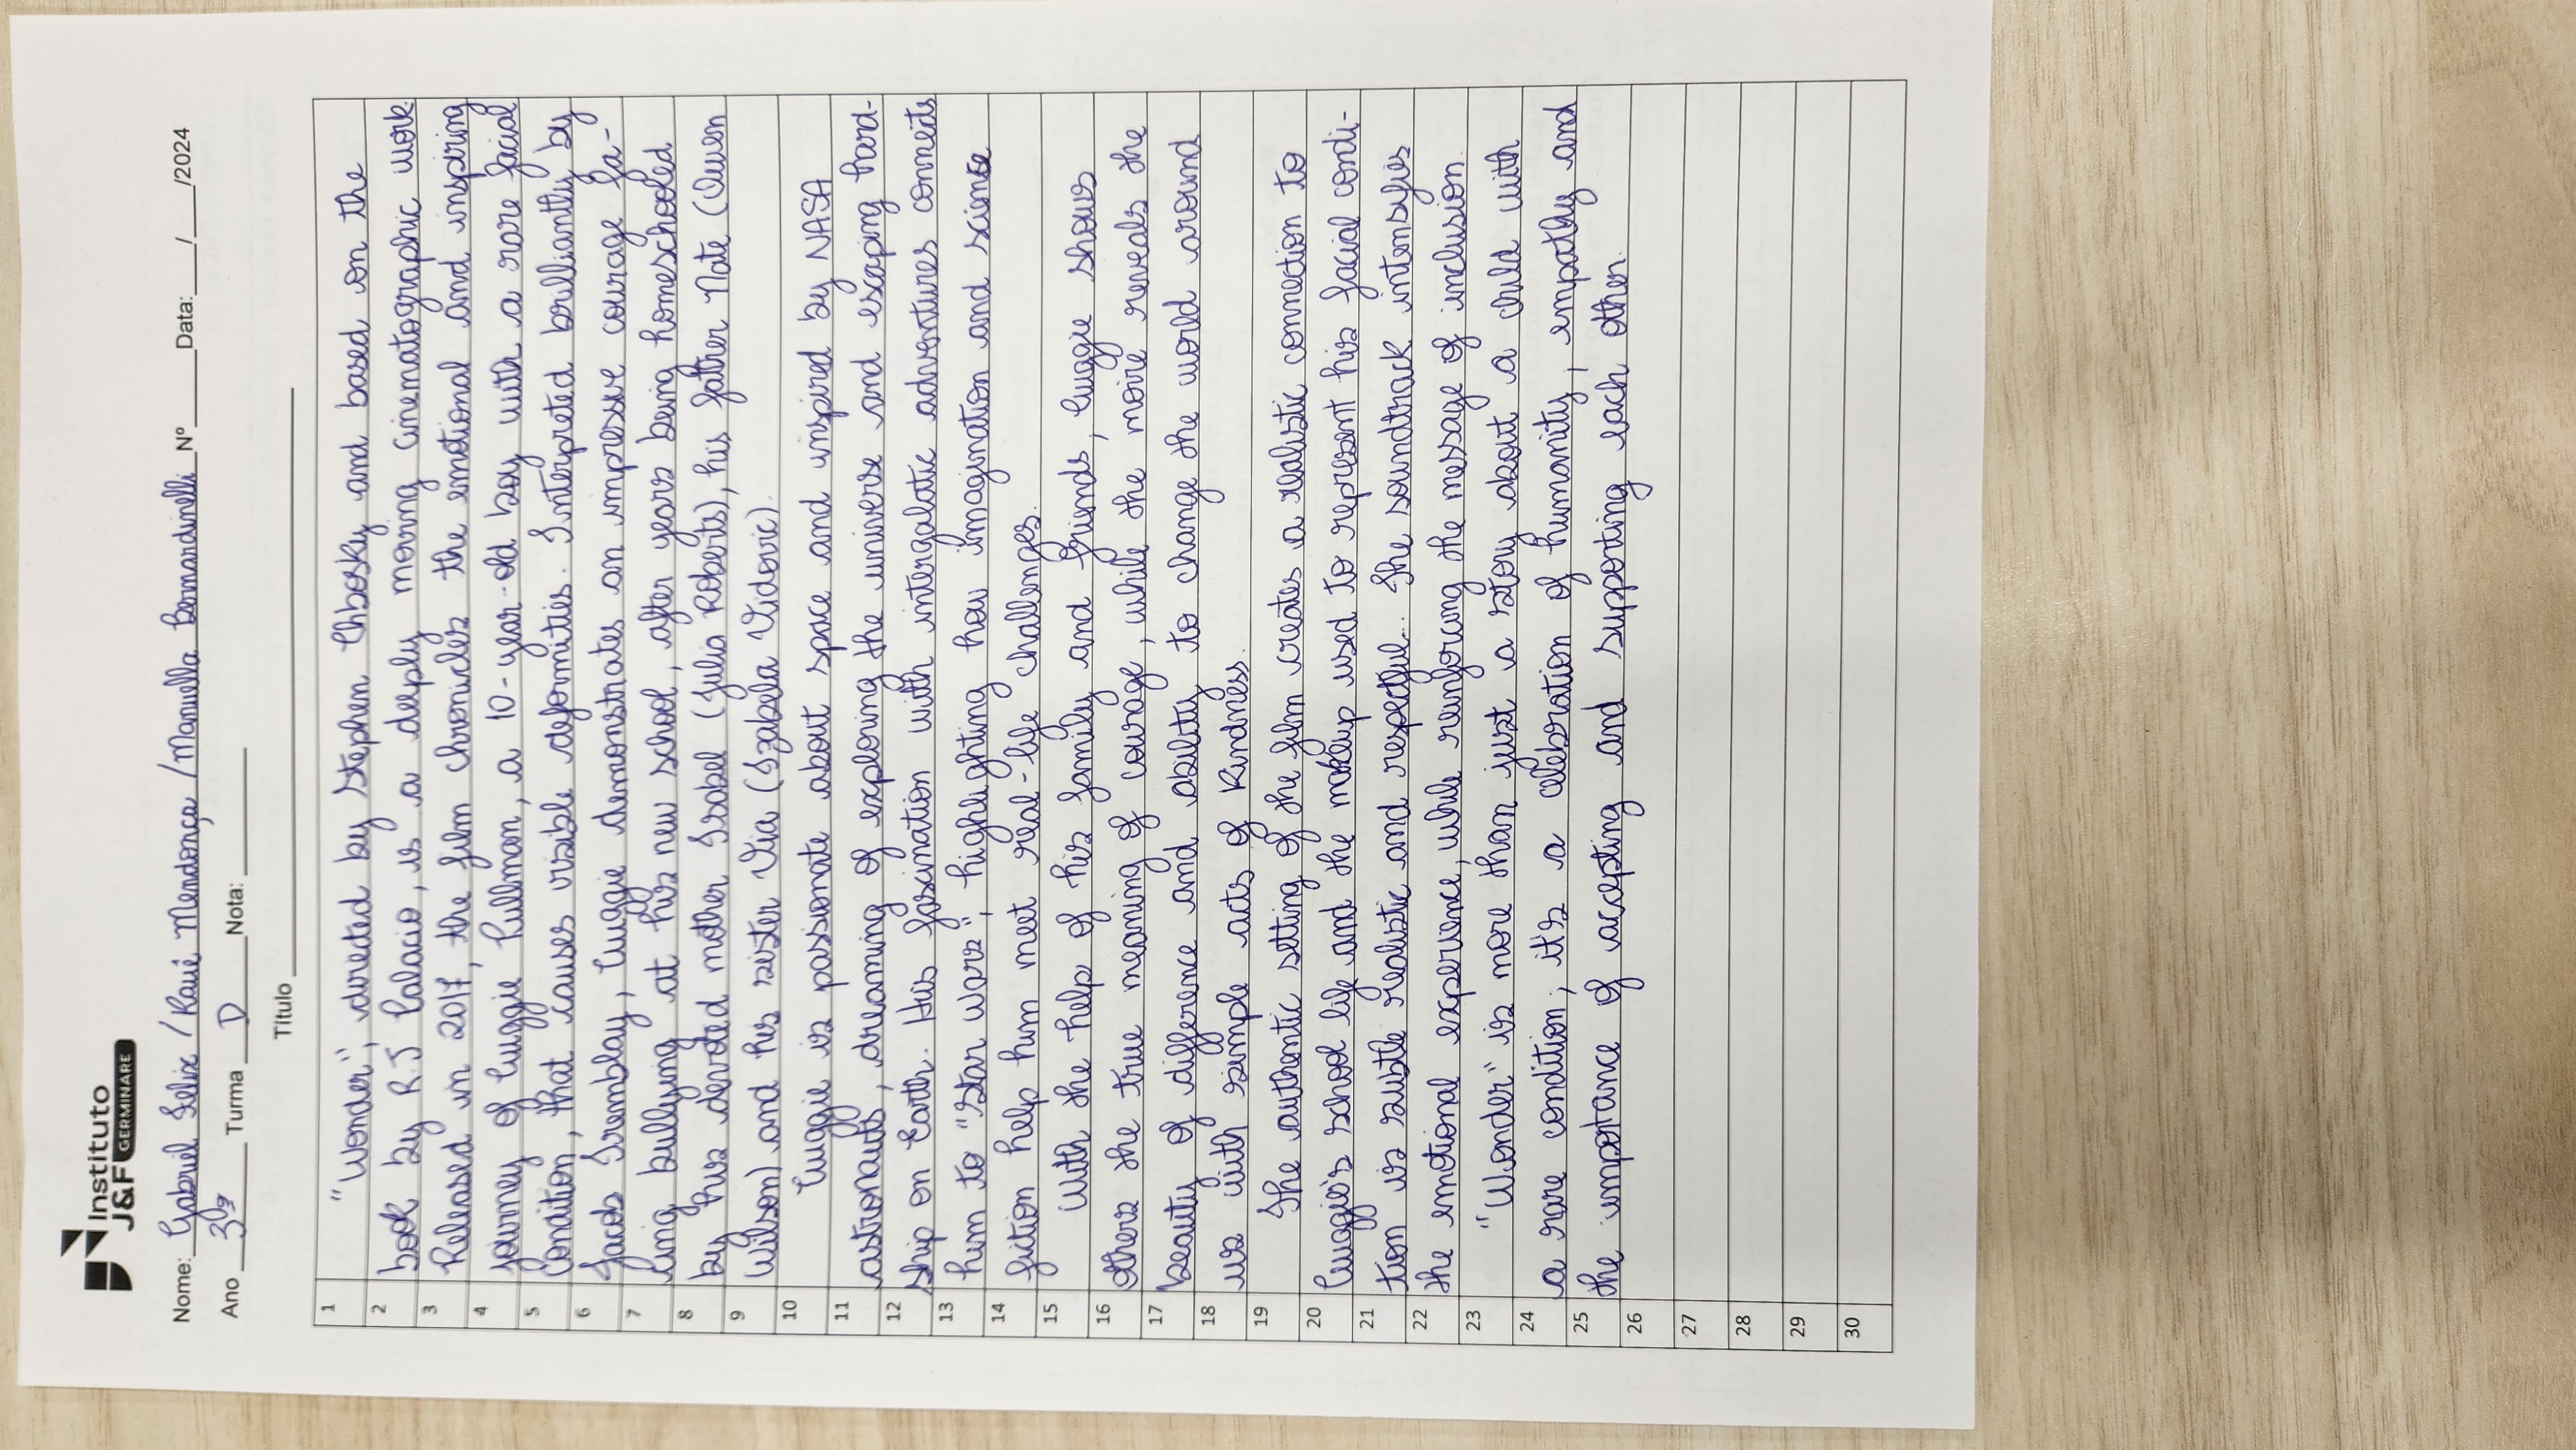 Instituto
J&F GERMINARE
Nome: Gabriel Felix / Kauê Mendonça / Manuella Bernardinelli Nº____ Data:___/___/2024
Ano 3º Turma D Nota:
Título
1 "Wonder", directed by Stephen Chbosky and based on the
2 book by R.J Palacio, is a deeply moving cinematographic work.
3 Released in 2017, the film chronicles the emotional and inspiring
4 journey of Auggie Pullman, a 10-year-old boy with a rare facial
5 condition, that causes visible deformities. Interpreted brilliantly by
6 Jacob Tremblay, Auggie demonstrates an impressive courage fa-
7 cing bullying at his new school, after years being homeschooled
8 by his devoted mother Isabel (Julia Roberts), his father Nate (Owen
9 Wilson) and his sister Via (Izabela Vidovic).
10 Auggie is passionate about space and inspired by NASA
11 astronauts, dreaming of exploring the universe and escaping hard-
12 ship on Earth. His fascination with intergalatic adventures connects
13 him to "Star Wars", highlighting how imagination and science
14 fiction help him meet real-life challenges.
15 With the help of his family and friends, Auggie shows
16 others the true meaning of courage, while the movie reveals the
17 beauty of difference and ability to change the world around
18 us with simple acts of kindness.
19 The authentic setting of the film creates a realistic connection to
20 Auggie's school life and the makeup used to represent his facial condi-
21 tion is subtle realistic and respectful.. The soundtrack intensifies
22 the emotional experience, while reinforcing the message of inclusion.
23 "Wonder" is more than just a story about a child with
24 a rare condition; it's a celebration of humanity, empathy and
25 the importance of accepting and supporting each other.
26
27
28
29
30